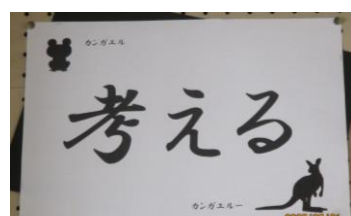 カンガエル
考える
カンガエルー